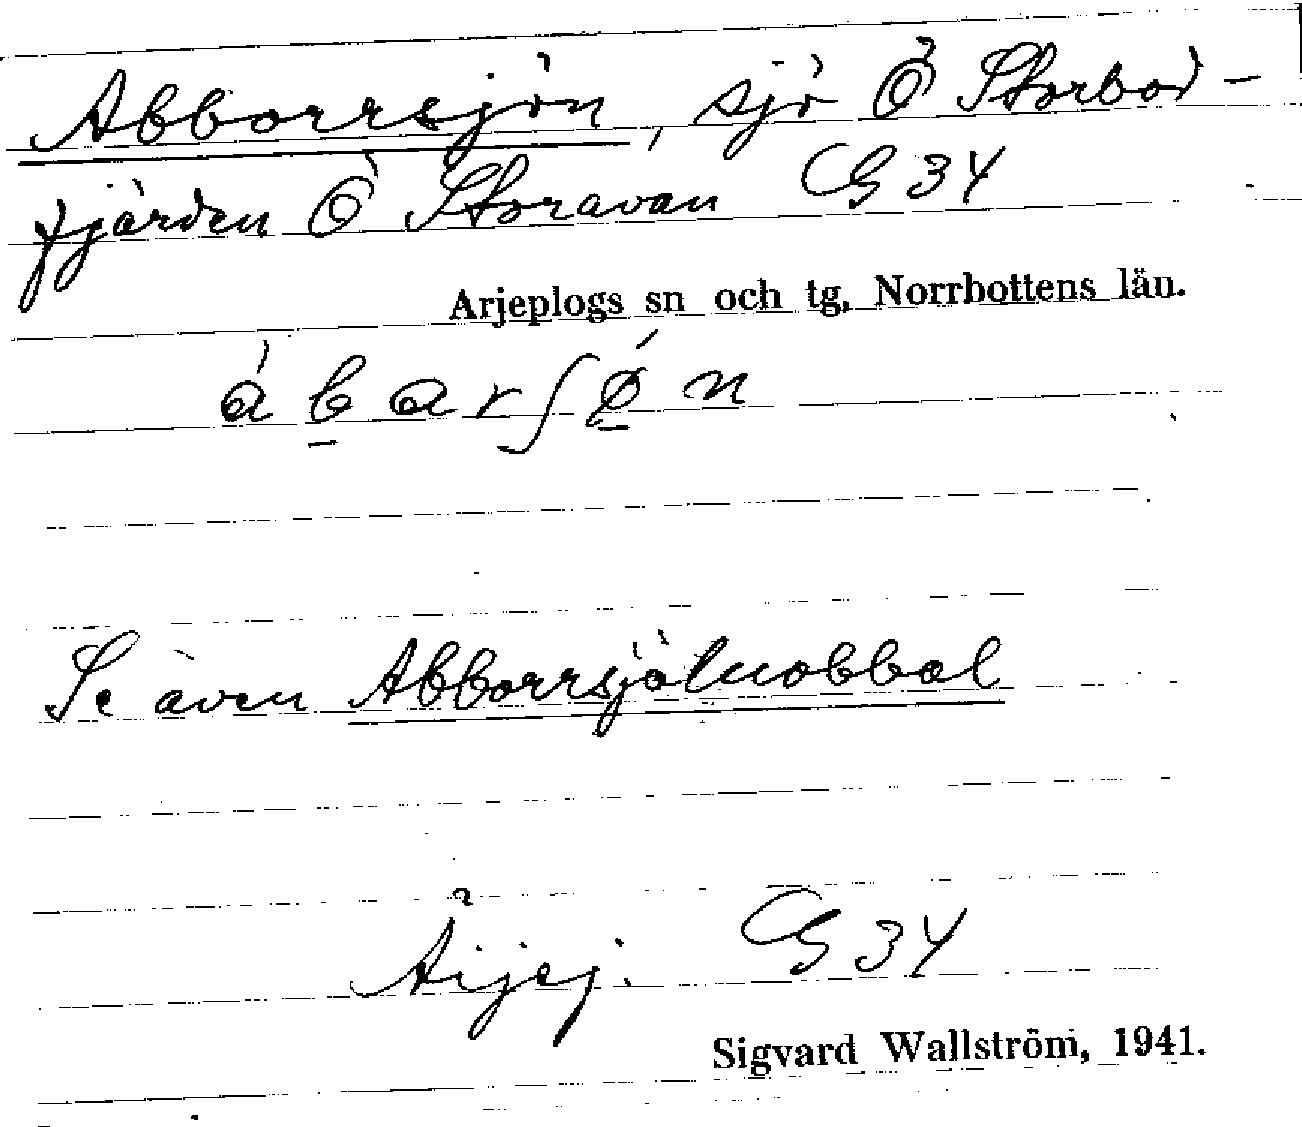 Abborrsjön, sjö Ö Storbod-
fjärden Ö Storavan G 34
Arjeplogs sn och tg, Norrbottens län.
á b̲ a r ʃ ǿ̲ n
Se även Abborrsjöluobbal
G 34
Sigvard Wallström, 1941.